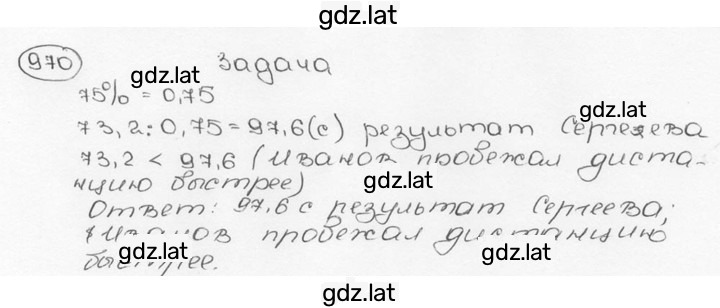 gdz.lat
970 задача
gdz.lat
75% = 0,75
73,2 : 0,75 = 97,6 (с) результат Сергеева
73,2 < 97,6 (Иванов пробежал диста-
нцию быстрее)
gdz.lat
Ответ: 97,6 с результат Сергеева;
Иванов пробежал дистанцию
gdz.lat gdz.lat
быстрее.
gdz.lat